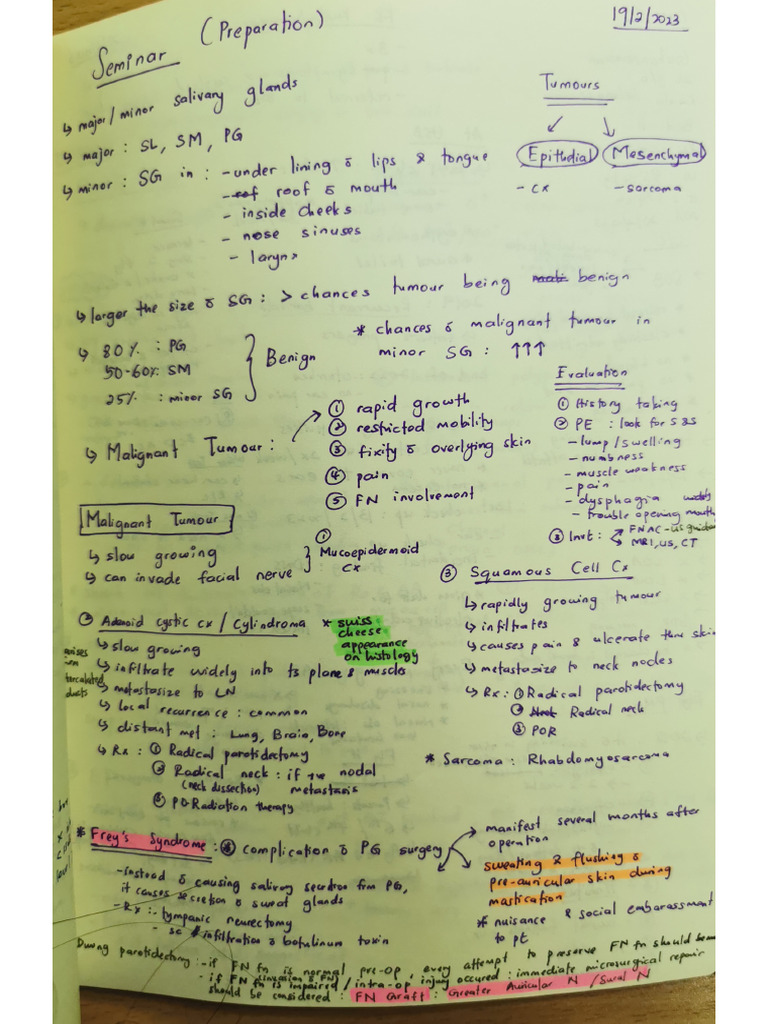 Seminar (Preparation)
19/2/2023
↳ major/minor salivary glands
↳ major : SL, SM, PG
↳ minor : SG in : - under lining of lips & tongue
- roof of mouth
- inside cheeks
- nose sinuses
- larynx
Tumours
Epithelial Mesenchymal
- cx - sarcoma
↳ larger the size of SG : > chances tumour being benign
↳ 80% : PG
50-60% SM
25% : minor SG
} Benign
* chances of malignant tumour in
minor SG : ↑↑↑
↳ Malignant Tumour :
① rapid growth
② restricted mobility
③ fixity of overlying skin
④ pain
⑤ FN involvement
Evaluation
① History taking
② PE : look for S&S
- lump/swelling
- numbness
- muscle weakness
- pain
- dysphagia
- trouble opening mouth
③ Invt : FNAC - US guided
MRI, US, CT
Malignant Tumour
↳ slow growing
↳ can invade facial nerve
① Mucoepidermoid
cx
② Adenoid cystic cx / Cylindroma * swiss
cheese
appearance
on histology
↳ slow growing
↳ infiltrate widely into ts plane & muscles
↳ metastasize to LN
↳ local recurrence : common
↳ distant met : Lung, Brain, Bone
↳ Rx : ① Radical parotidectomy
② Radical neck : if +ve nodal
(neck dissection) metastasis
③ PO Radiation therapy
arises
tercalated
ducts
③ Squamous Cell Cx
↳ rapidly growing tumour
↳ infiltrates
↳ causes pain & ulcerate thru skin
↳ metastasize to neck nodes
↳ Rx : ① Radical parotidectomy
② Radical neck
③ POR
* Sarcoma : Rhabdomyosarcoma
* Frey's Syndrome : complication of PG surgery
manifest several months after
operation
sweating & flushing of
pre-auricular skin during
mastication
* nuisance & social embarassment
to pt
- instead of causing salivary secretion from PG,
it causes secretion of sweat glands
- Rx : - tympanic neurectomy
- sc infiltration of botulinum toxin
During parotidectomy : - if FN fn is normal pre-op, every attempt to preserve FN fn should be
- if FN fn is impaired / intra-op injury occured : immediate microsurgical repair
should be considered : FN Graft : Greater Auricular N / Sural N